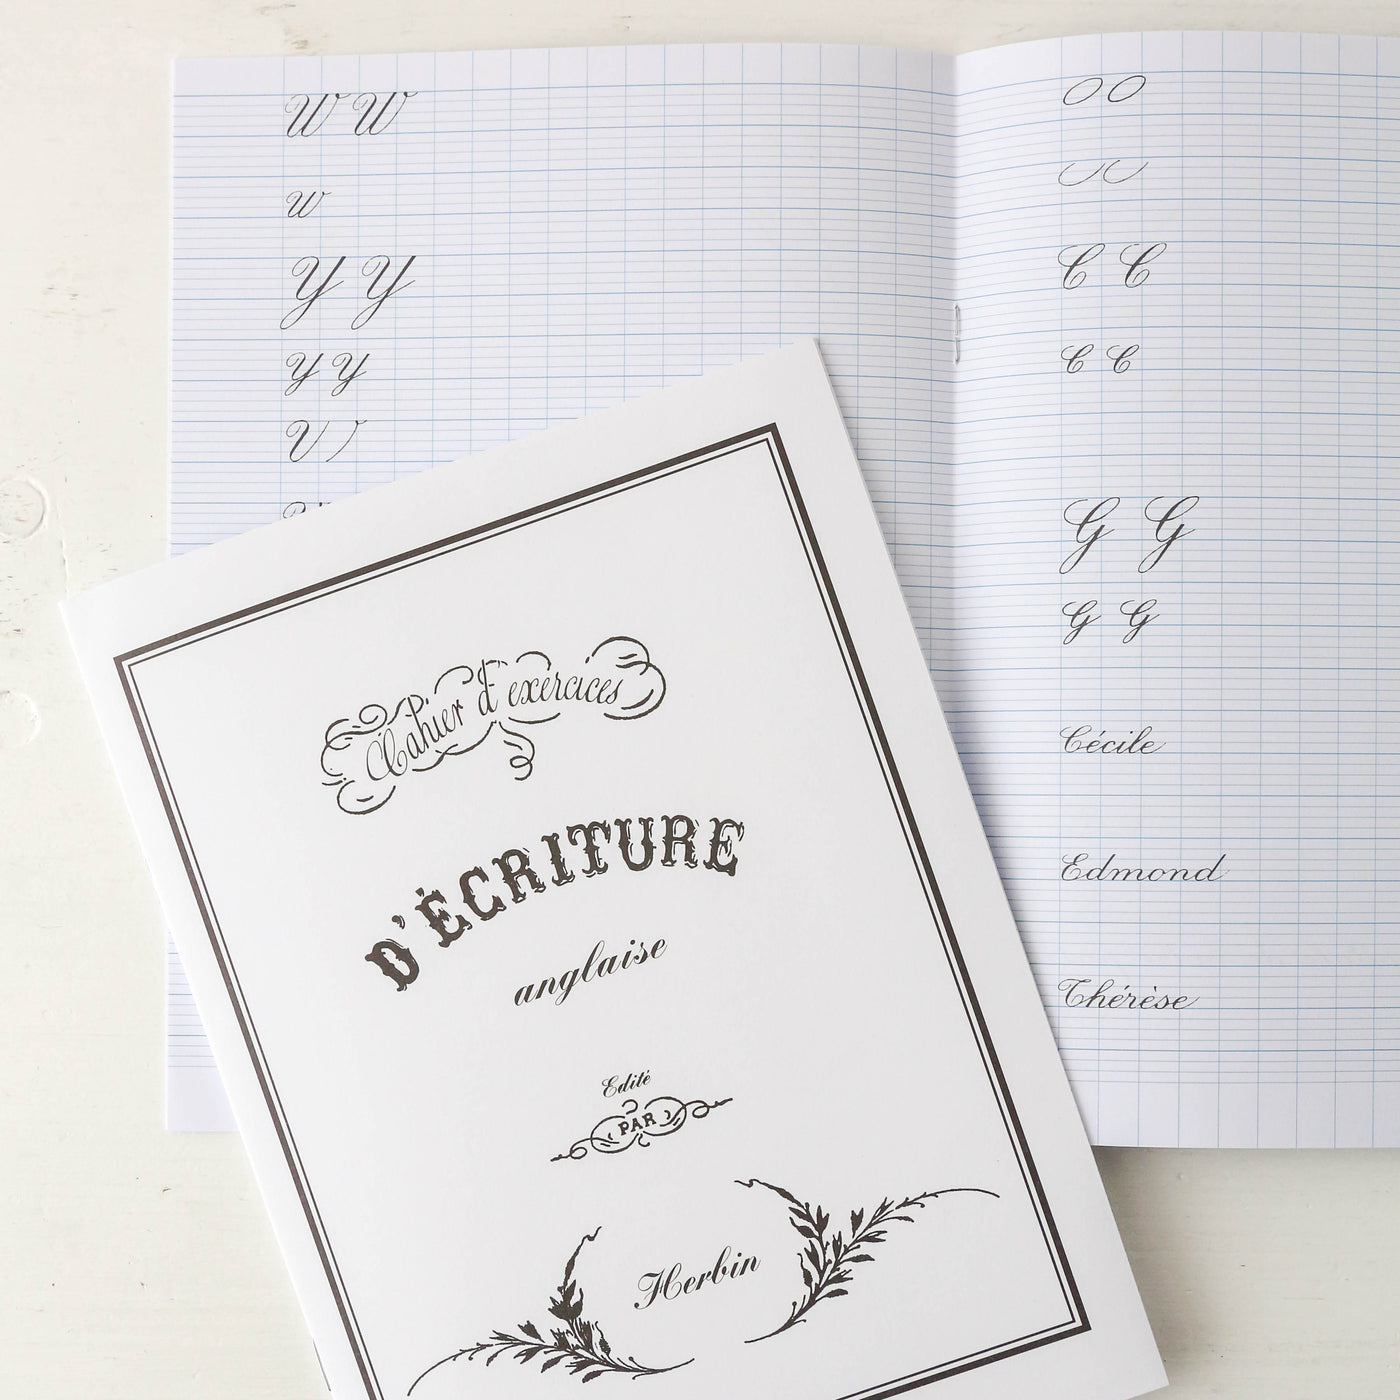 W W
w
Y Y
y y
O O
C C
C C
G G
G G
Cécile
Edmond
Thérèse
Cahier d'exercices
D'ÉCRITURE
anglaise
Edité
PAR
Herbin